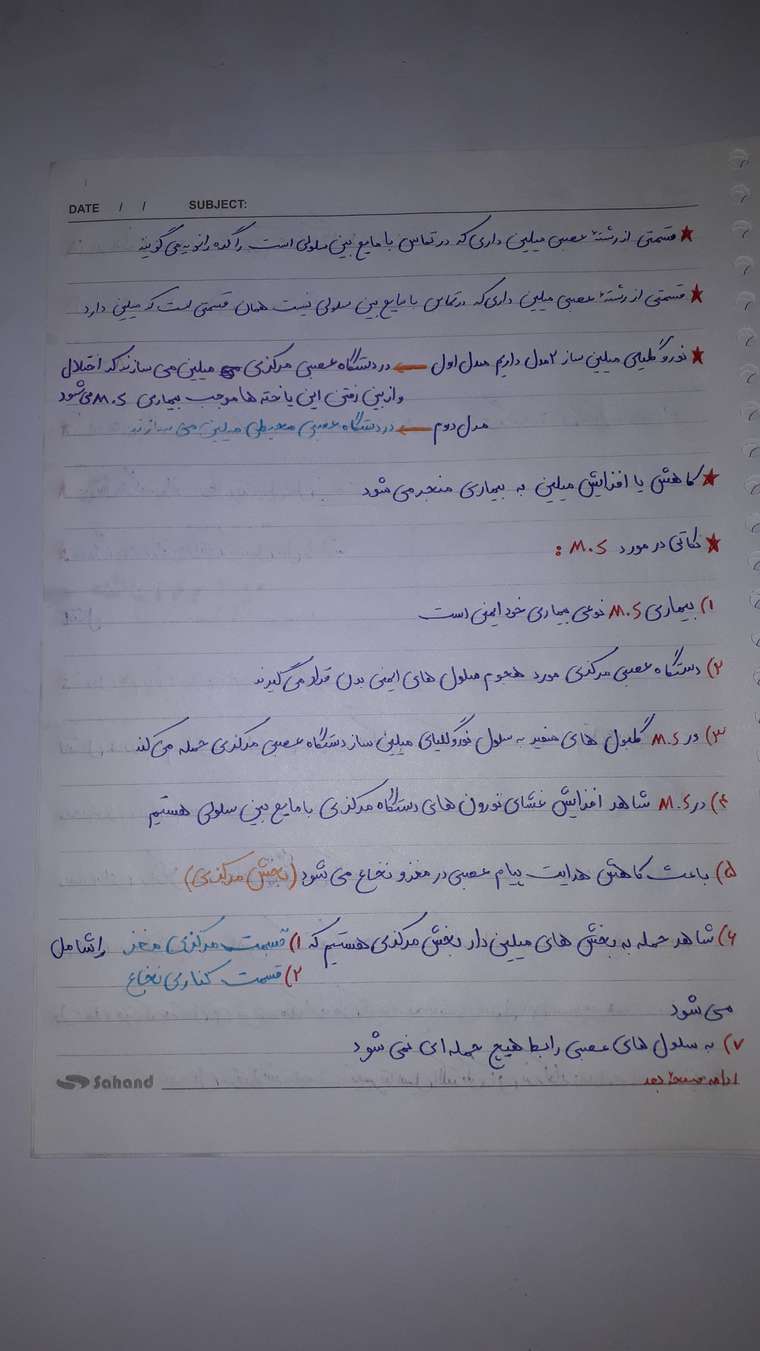 DATE / / SUBJECT:
★ قسمتی از رشتهٔ عصبی میلین داری که در تماس با مایع بین سلولی است را گره رانویه می گویند
★ قسمتی از رشتهٔ عصبی میلین داری که در تماس با مایع بین سلولی نیست همان قسمتی است که میلین دارد
★ نوروگلیای میلین ساز ۲ مدل داریم مدل اول ← در دستگاه عصبی مرکزی میلین می سازند که اختلال
و از بین رفتن این یاخته ها موجب بیماری M.S می شود
مدل دوم ← در دستگاه عصبی محیطی میلین می سازند
★ کاهش یا افزایش میلین به بیماری منجر می شود
★ نکاتی در مورد M.S :
۱) بیماری M.S نوعی بیماری خود ایمنی است
۲) دستگاه عصبی مرکزی مورد هجوم سلول های ایمنی بدن قرار می گیرند
۳) در M.S گلبول های سفید به سلول نوروگلیای میلین ساز دستگاه عصبی مرکزی حمله می کند
۴) در M.S شاهد افزایش غشای نورون های دستگاه مرکزی با مایع بین سلولی هستیم
۵) باعث کاهش هدایت پیام عصبی در مغز و نخاع می شود (بخش مرکزی)
۶) شاهد حمله به بخش های میلین دار بخش مرکزی هستیم که ۱) قسمت مرکزی مغز را شامل
۲) قسمت کناری نخاع
می شود
۷) به سلول های عصبی رابط هیچ حمله ای نمی شود
ادامه صفحهٔ بعد
Sahand